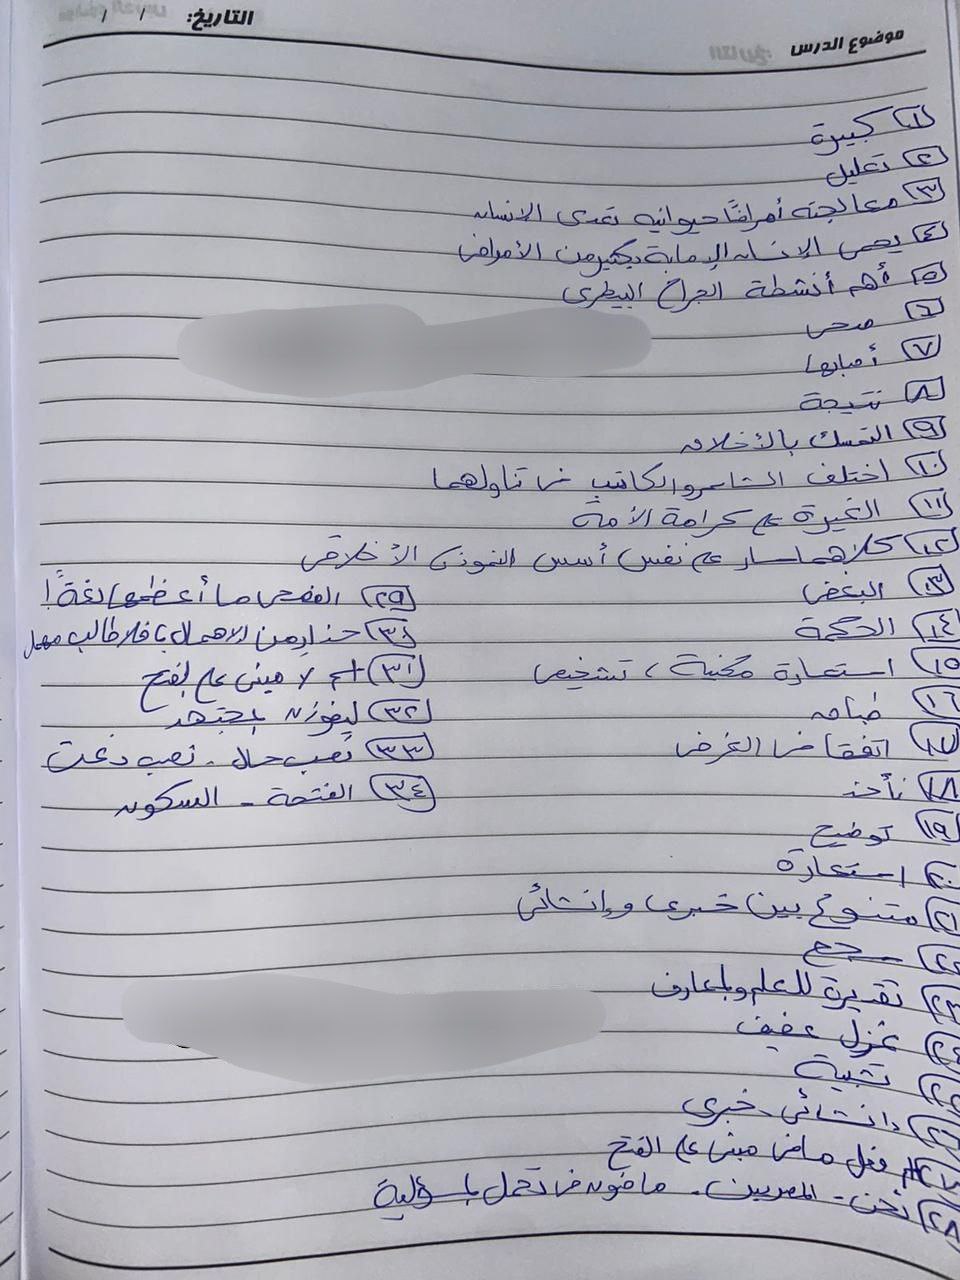 موضوع الدرس
التاريخ: / /
١ كبيرة
٢ تعليل
٣ معالجته أمراضًا حيوانيه تعدى الانسان
٤ يحمى الإنسان الإصابة بكثير من الأمراض
٥ أهم أنشطة الجراح البيطرى
٦ ضحى
٧ أصابها
٨ نتيجة
٩ التمسك بالأخلاق
١٠ اختلف الشاعر والكاتب فى تناولهما
١١ الغيرة على كرامة الأمة
١٢ كلاهما سار على نفس أسس النموذج الأخلاقى
١٣ البغض
١٤ الحكمة
١٥ استعارة مكنية، تشخيص
١٦ طباق
١٧ اتفقا فى الغرض
١٨ نأخذ
١٩ توضيح
٢٠ استعارة
٢١ متنوع بين خبرى وإنشائى
٢٢ سجع
٢٣ تقديره للعلم والمعارف
٢٤ غزل عفيف
٢٥ تشبية
٢٦ إنشائى - خبرى
٢٧ فعل ماض مبنى على الفتح
٢٨ نحن - المصريين - ماضون فى تحمل المسؤلية
٢٩ الفصحى ما أعظمها لغةً!
٣٠ حذار من الاهمال يا فلا طالب مهمل
٣١ اسم لا مبنى على الفتح
٣٢ ليفوزن المجتهد
٣٣ نصب حال - نصب نعت
٣٤ الفتحة - السكون